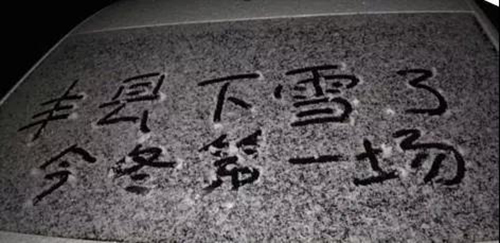 丰县下雪了
今冬第一场